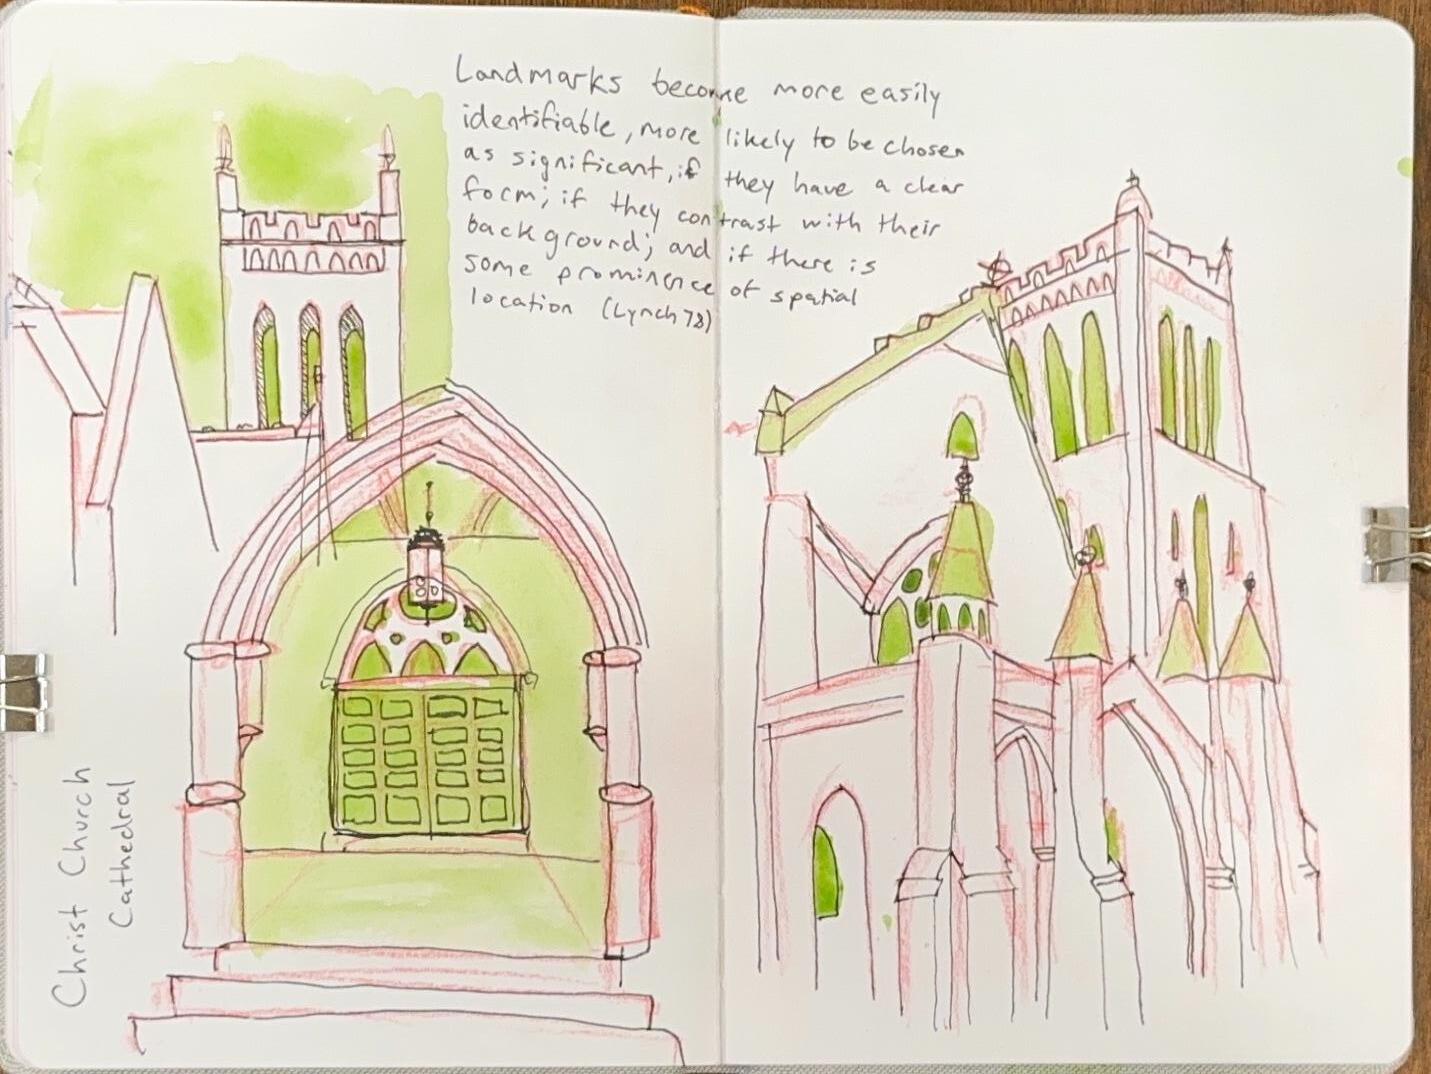 Landmarks become more easily
identifiable, more likely to be chosen
as significant, if they have a clear
form; if they contrast with their
background; and if there is
some prominence of spatial
location (Lynch 78)
Christ Church
Cathedral